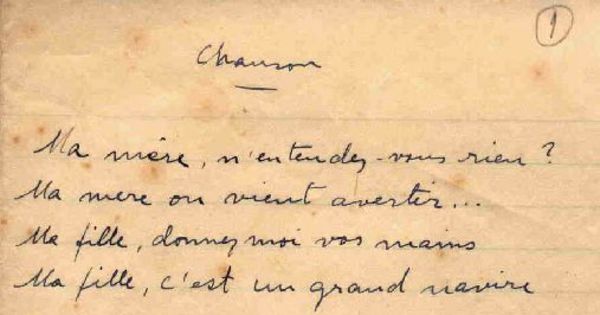 1
Chanson
Ma mère, n'entendez-vous rien ?
Ma mere on vient avertir...
Ma fille, donnez moi vos mains
Ma fille, c'est un grand navire